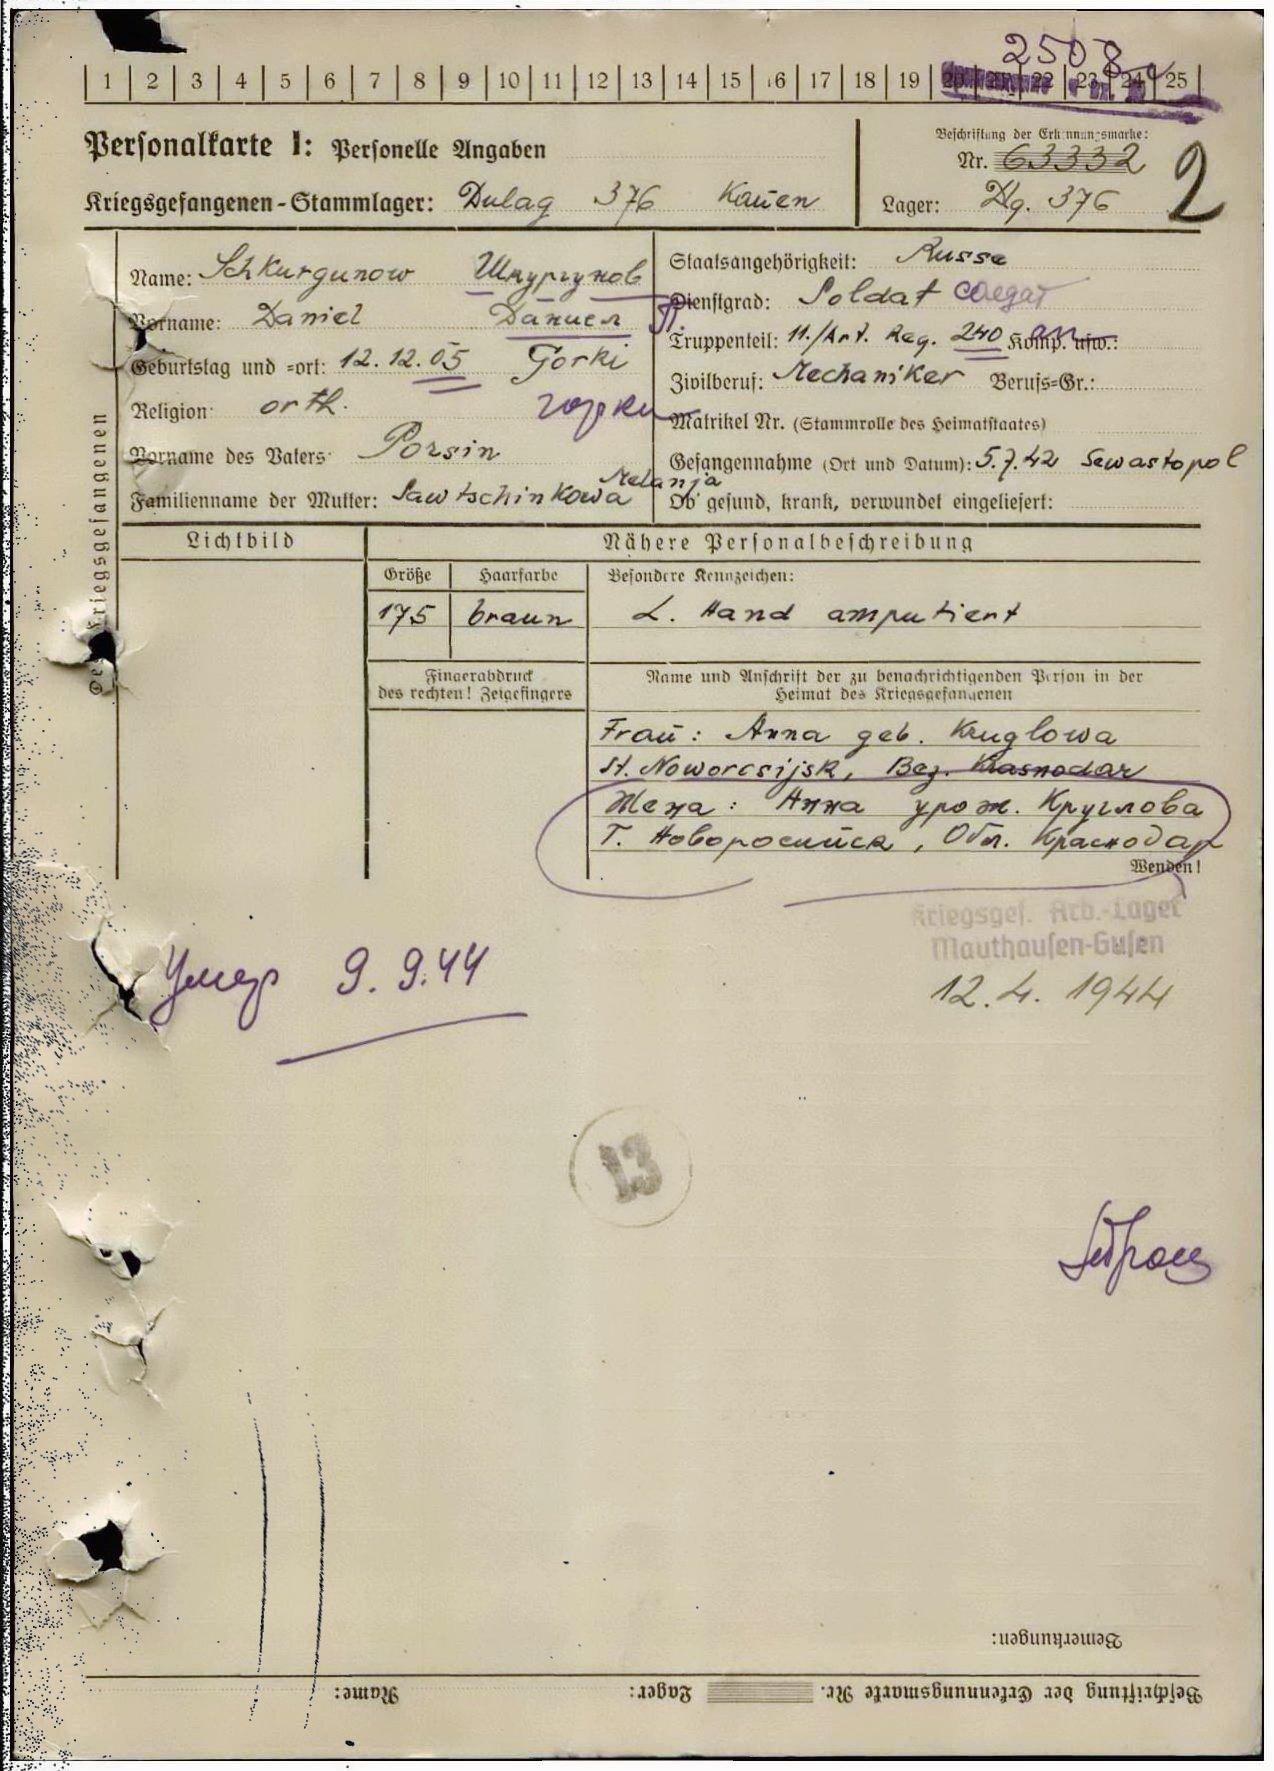 2508
1 2 3 4 5 6 7 8 9 10 11 12 13 14 15 16 17 18 19 20 21 22 23 24 25
Personalkarte I: Personelle Angaben
Beschriftung der Erkennungsmarke:
Nr. 63332
2
Kriegsgefangenen-Stammlager: Dulag 376 Kauen
Lager: Dlg. 376
Des Kriegsgefangenen
Name: Schkurgunow Шкургунов
Vorname: Daniel Даниел П.
Geburtstag und =ort: 12.12.05 Gorki
Religion: orth. горки
Vorname des Vaters: Porsin
Familienname der Mutter: Sawtschinkowa Melanja
Staatsangehörigkeit: Russe
Dienstgrad: Soldat солдат
Truppenteil: 11./Art. Reg. 240 Komp. usw.: ап
Zivilberuf: Mechaniker Berufs-Gr.:
Matrikel Nr. (Stammrolle des Heimatstaates)
Gefangennahme (Ort und Datum): 5.7.42 Sewastopol
Ob gesund, krank, verwundet eingeliefert:
Lichtbild
Nähere Personalbeschreibung
Größe Haarfarbe Besondere Kennzeichen:
175 braun L. Hand amputiert
Fingerabdruck
des rechten! Zeigefingers
Name und Anschrift der zu benachrichtigenden Person in der
Heimat des Kriegsgefangenen
Frau: Anna geb. Kruglowa
St. Noworosijsk, Bez. Krasnodar
Жена: Анна урож. Круглова
Г. Новоросийск, Обл. Краснодар
Wenden!
Kriegsgef. Arb.-Lager
Mauthausen-Gusen
12.4. 1944
Умер 9.9.44
13
Bemerkungen:
Beschriftung der Erkennungsmarke Nr. Lager: Name: